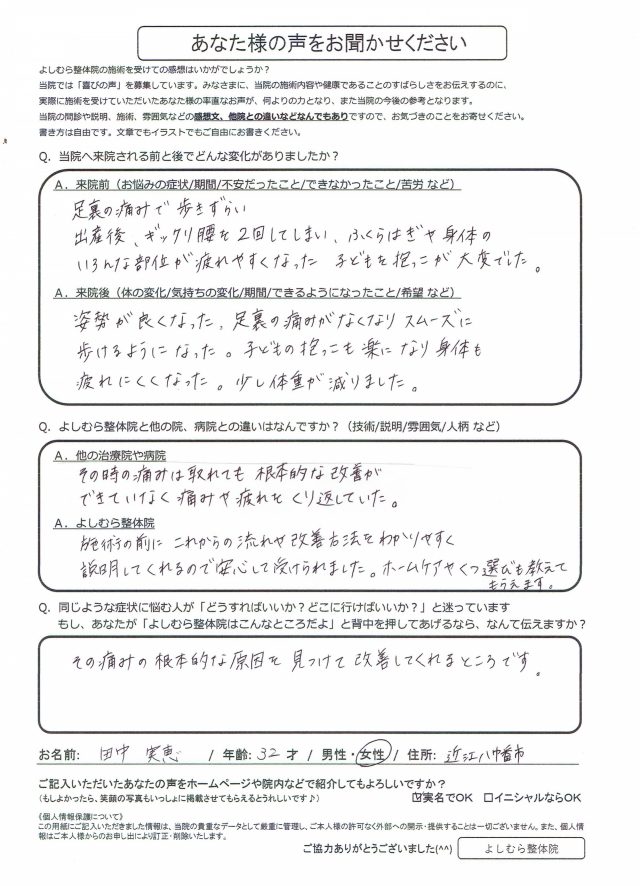 あなた様の声をお聞かせください
よしむら整体院の施術を受けての感想はいかがでしょうか？
当院では「喜びの声」を募集しています。みなさまに、当院の施術内容や健康であることのすばらしさをお伝えするのに、
実際に施術を受けていただいたあなた様の率直なお声が、何よりの力となり、また当院の今後の参考となります。
当院の問診や説明、施術、雰囲気などの感想文、他院との違いなどなんでもありですので、お気づきのことをお寄せください。
書き方は自由です。文章でもイラストでもご自由にお書きください。
Q．当院へ来院される前と後でどんな変化がありましたか？
A．来院前（お悩みの症状/期間/不安だったこと/できなかったこと/苦労 など）
足裏の痛みで歩きずらい
出産後、ギックリ腰を2回してしまい、ふくらはぎや身体の
いろんな部位が疲れやすくなった 子どもを抱っこが大変でした。
A．来院後（体の変化/気持ちの変化/期間/できるようになったこと/希望 など）
姿勢が良くなった。足裏の痛みがなくなりスムーズに
歩けるようになった。子どもの抱っこも楽になり身体も
疲れにくくなった。少し体重が減りました。
Q．よしむら整体院と他の院、病院との違いはなんですか？（技術/説明/雰囲気/人柄 など）
A．他の治療院や病院
その時の痛みは取れても根本的な改善が
できていなく痛みや疲れをくり返していた。
A．よしむら整体院
施術の前にこれからの流れや改善方法をわかりやすく
説明してくれるので安心して受けられました。ホームケアやくつ選びも教えて
もらえます。
Q．同じような症状に悩む人が「どうすればいいか？どこに行けばいいか？」と迷っています
もし、あなたが「よしむら整体院はこんなところだよ」と背中を押してあげるなら、なんて伝えますか？
その痛みの根本的な原因を見つけて改善してくれるところです。
お名前： 田中 実恵 / 年齢：32 才 / 男性・女性 / 住所： 近江八幡市
ご記入いただいたあなたの声をホームページや院内などで紹介してもよろしいですか？
（もしよかったら、笑顔の写真もいっしょに掲載させてもらえるとうれしいです♪） ☑実名でOK □イニシャルならOK
《個人情報保護について》
この用紙にご記入いただきました情報は、当院の貴重なデータとして厳重に管理し、ご本人様の許可なく外部への開示・提供することは一切ございません。また、個人情
報はご本人様からのお申し出により訂正・削除いたします。
ご協力ありがとうございました(^^) よしむら整体院